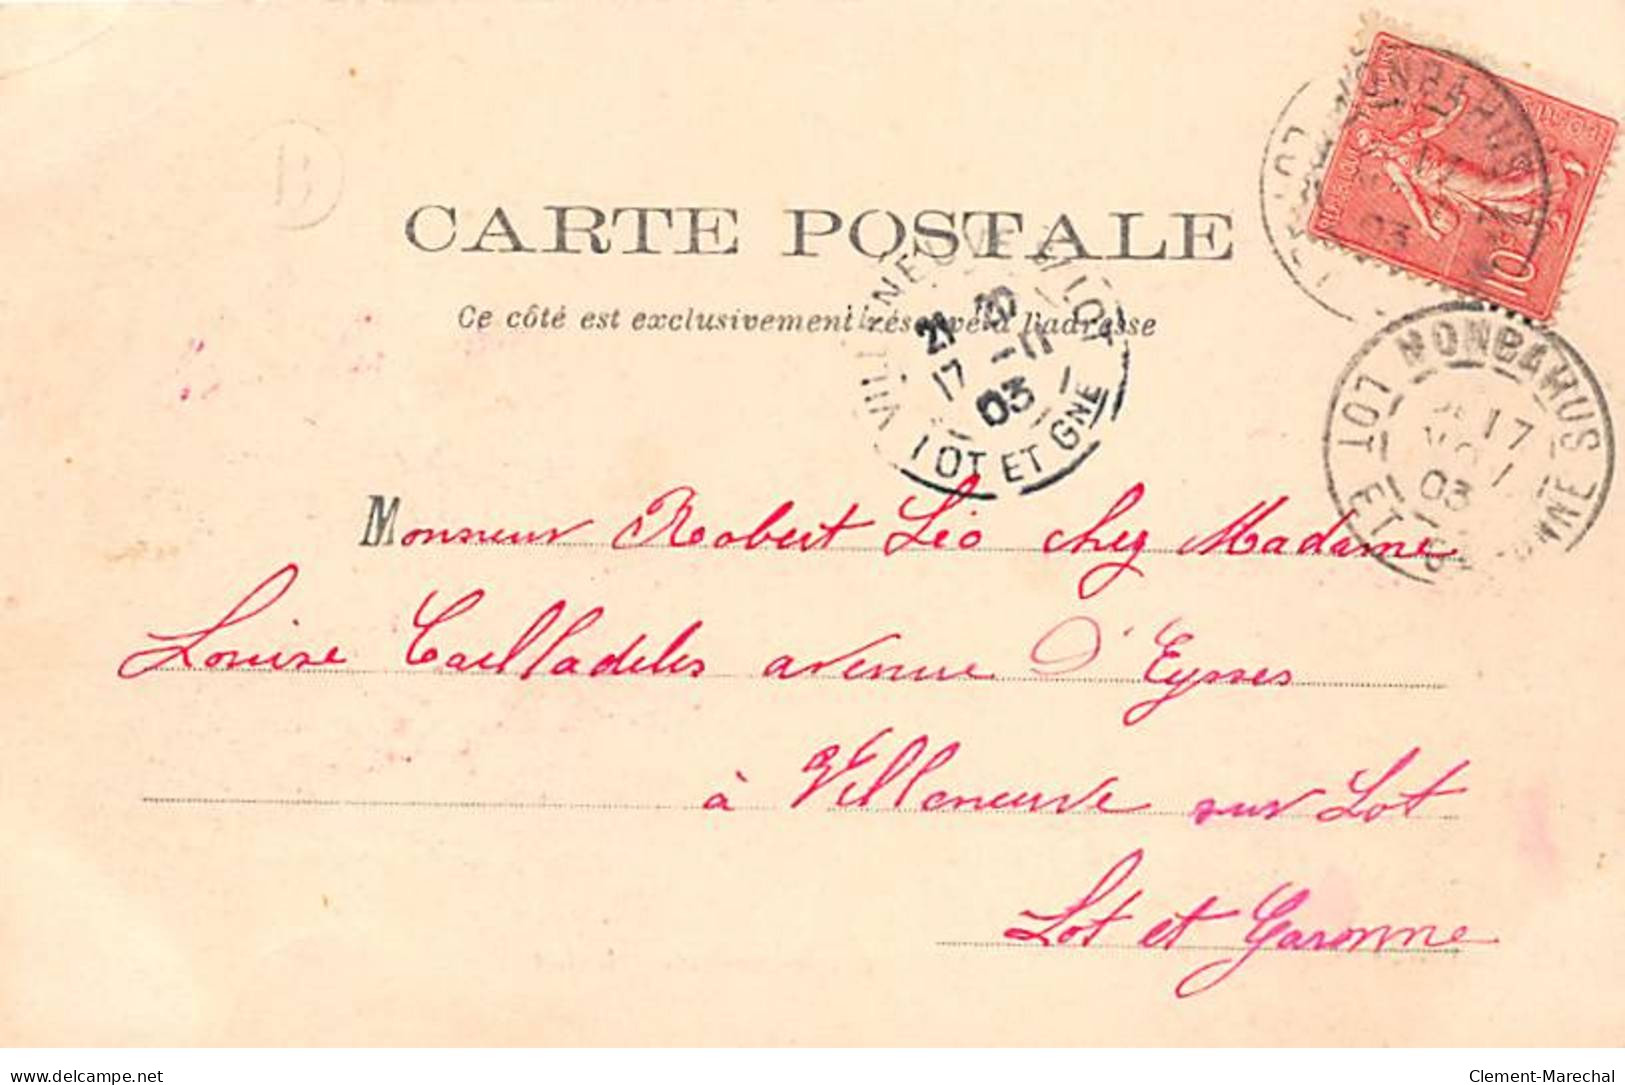 MONBAHUS
LOT
17
03
10c
B
CARTE POSTALE
Ce côté est exclusivement réservé à l'adresse
VILLENEUVE S/ LOT
21
17 - 11
03
LOT ET GNE
MONBAHUS
17
NOV
03
LOT ET GARONNE
Monsieur Robert Léo chez Madame
Louise Cailladelles avenue d'Eysses
à Villeneuve sur Lot
Lot et Garonne
delcampe.net
Clement-Marechal